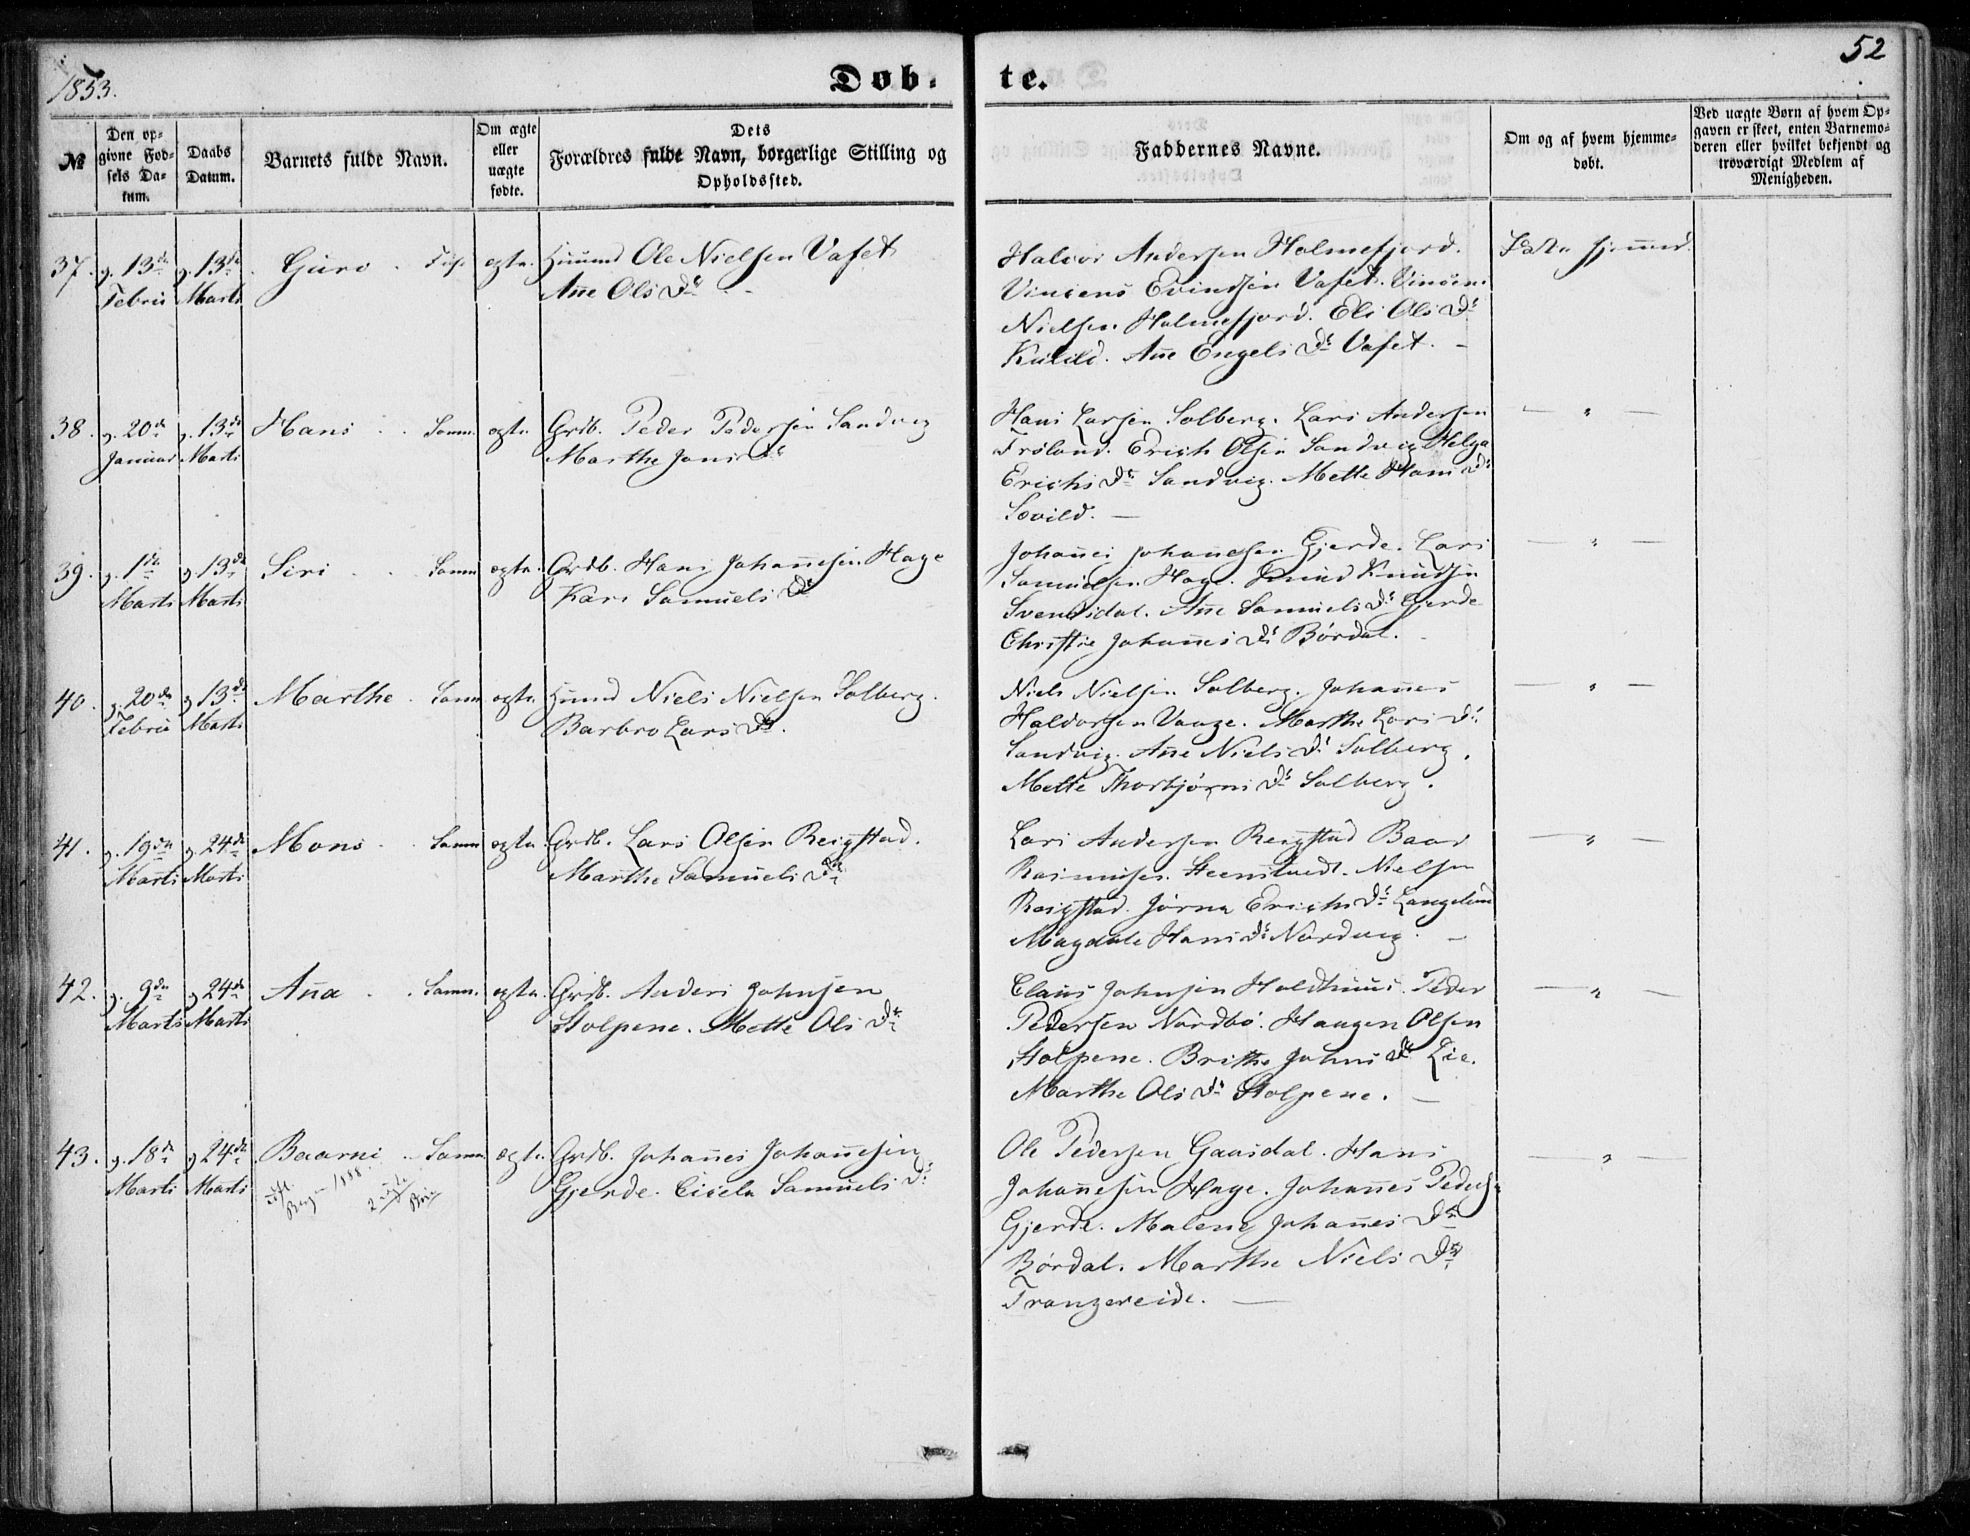 1853.
Døb-
te.
52
№
Den op-
givne Fød-
sels Da-
tum.
Daabs
Datum.
Barnets fulde Navn.
Om ægte
eller
uægte
fødte.
Dets
Forældres fulde Navn, borgerlige Stilling og
Opholdssted.
Faddernes Navne.
Om og af hvem hjemme-
døbt.
Ved uægte Børn af hvem Op-
gaven er skeet, enten Barnemo-
deren eller hvilket bekjendt og
troværdigt Medlem af
Menigheden.
37. 13de 13de Guro ægte. Huusmd Ole Nielsen Vaset
Febru Marts Ane Ols Dr
Halvor Andersen Holmefjord.
Vincens Evindsen Vaset. Vincens
Nielsen Holmefjord. Eli Ols Dr
Ane Engels Dr Vaset. –
38. 20de 13de Hans Samm. ægte Grdb. Peder Pedersen Sandvig
Januar Marts Marthe Jons Dr
Hans Larsen Solberg. Lars Andersen
Frøland. Erich Olsen Sandvig Helga
Erichs Dr Sandvig. Mette Hans Dr
Sævild. –
— " —
39. 1ste 13de Siri Samm ægte. Grdb. Hans Johannesen Hage
Marts Marts Kari Samuels Dr
Johannes Johannesen Gjerde. Lars
Samuelsen Hage. Knud Knudsen
Svendsdal. Ane Samuels Dr Gjerde
Christie Johannes Dr Børdal.
— " —
40. 20de 13de Marthe. Samm ægte. Huusmd Niels Nielsen Solberg.
Febru Marts Barbro Lars Dr.
Niels Nielsen Solberg. Johannes
Haldorsen Vaage. Marthe Lars Dr
Sandvig. Ane Niels Dr Solberg.
Mette Thorbjørns Dr Solberg.
— " —
41. 19de 24de Mons Samm ægte. Grdb. Lars Olsen Reigstad.
Marts Marts Marthe Samuels Dr
Lars Andersen Reigstad Baar
Rasmusen Steenstvedt. Nielsen
Reigstad. Jørna Erichs Dr Langeland
Magdele Hans Dr Nordvig. –
— " —
42. 9de 24de Anna Samm. ægte. Grdb. Anders Johnsen
Marts Marts Stolpene. Mette Ols Dr
Claus Johnsen Holdhuus. Peder
Pedersen Nordbø. Haagen Olsen
Stolpene. Brithe Johns Dr Lie.
Marthe Ols Dr Stolpene. –
— " —
43. 18de 24de Baarni Samm ægte. Grdb. Johannes Johannesen
Marts Marts Gjerde. Cicela Samuels Dr
Bergen 1888
Ole Pedersen Gaasdal. Hans
Johannesen Hage. Johannes Peders
Gjerde. Malene Johannes Dr
Børdal. Marthe Niels Dr
Trangereide. —
— " —